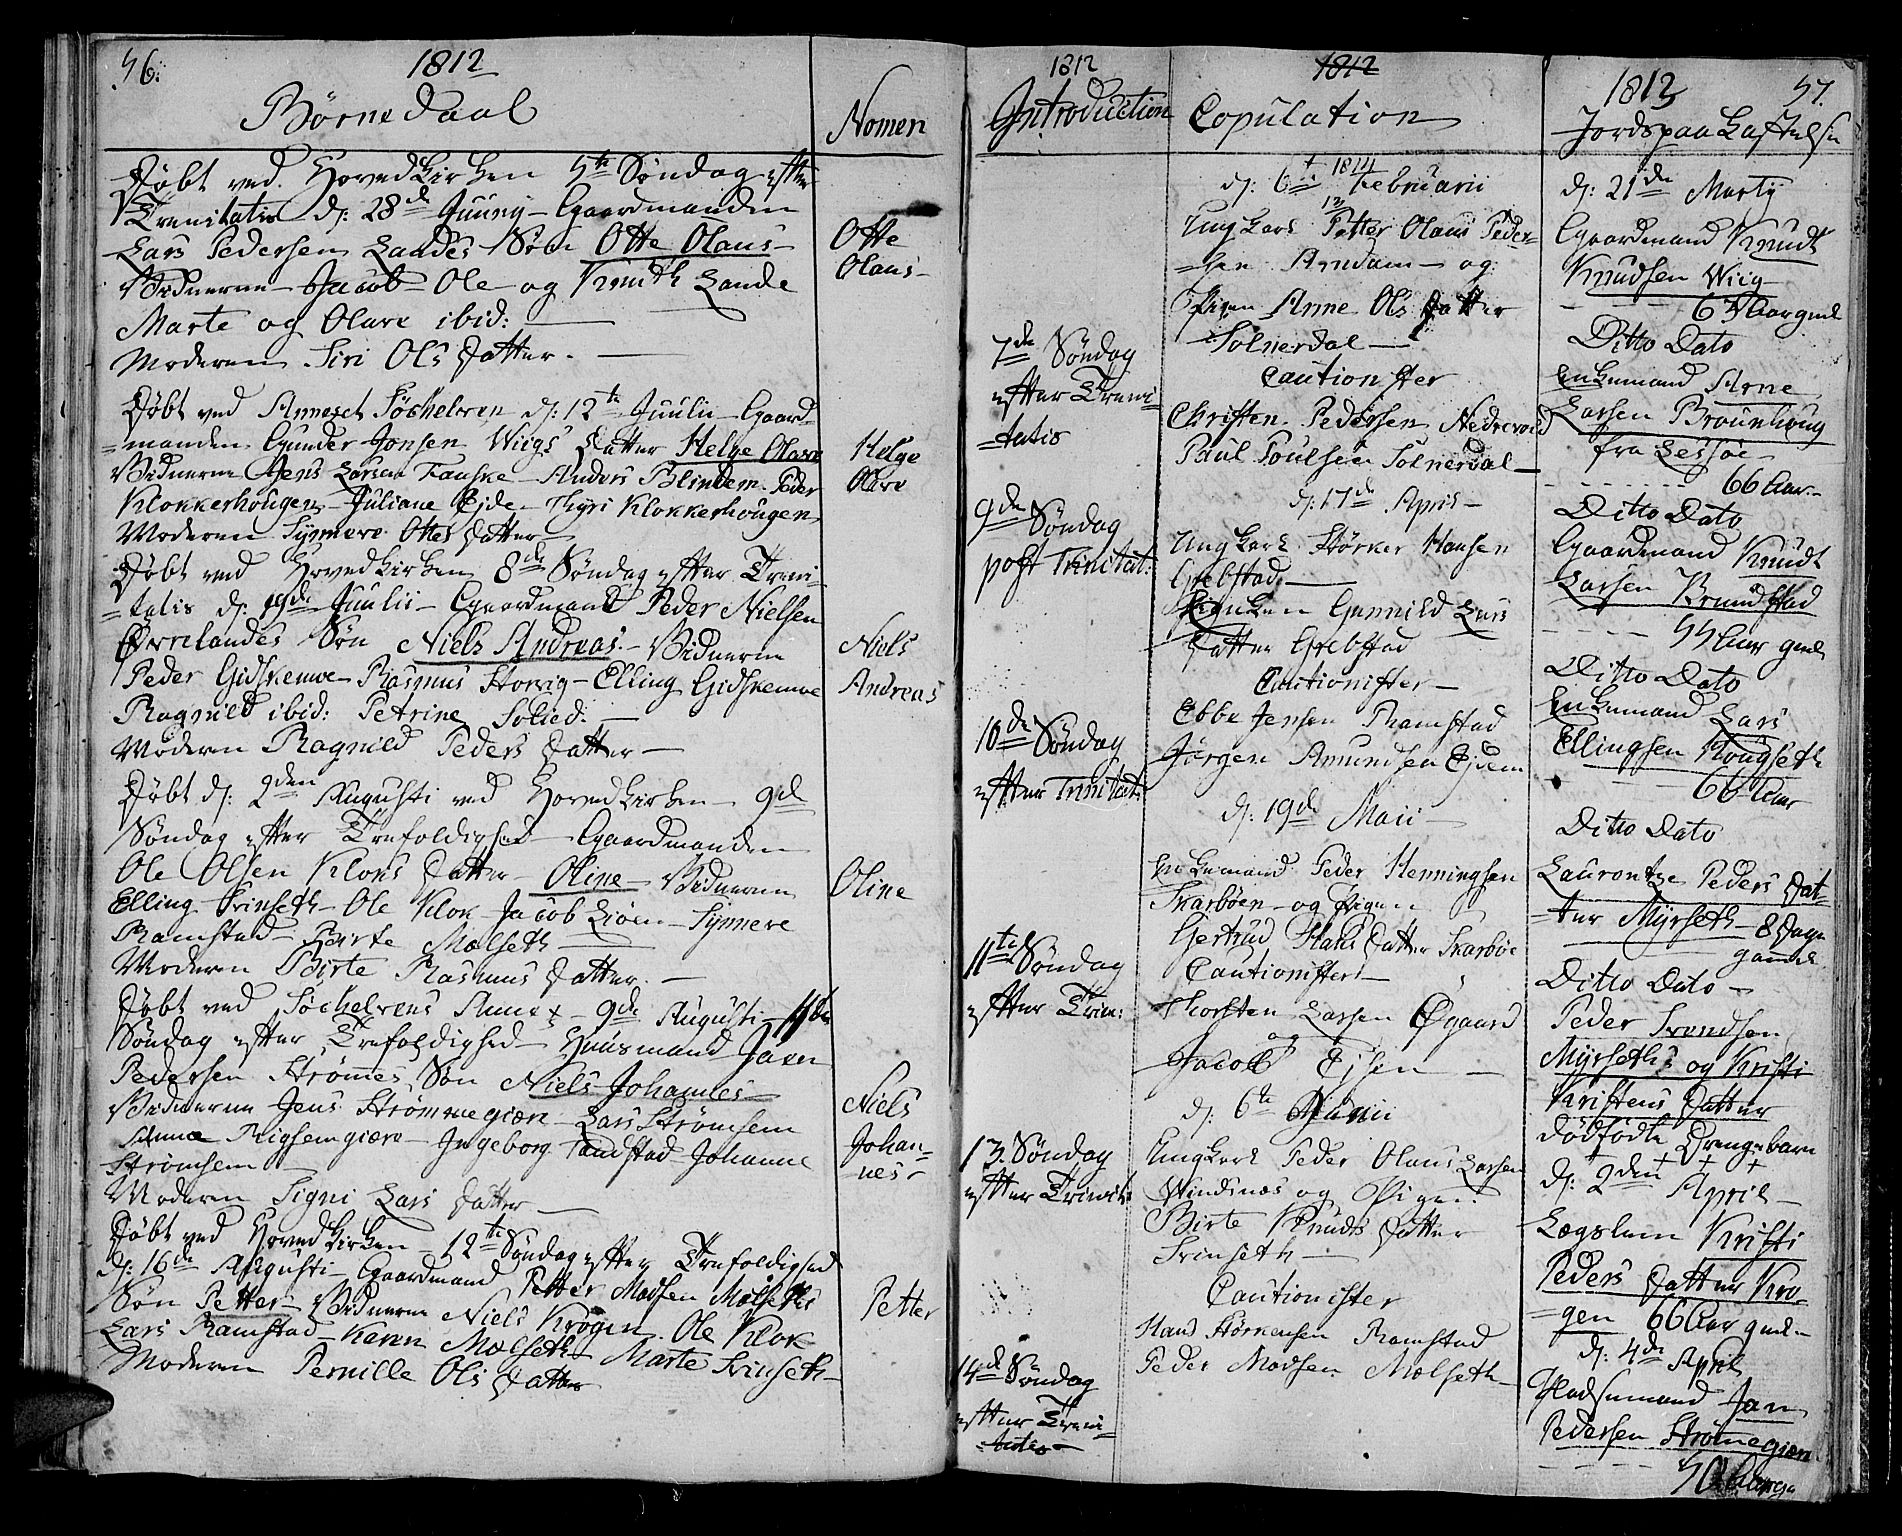 56.
1812
Børnedaab
Nomen
Døbt ved Hovedkirken 5te Søndag efter
Trenitatis d: 28de Juuny - Gaardmanden
Lars Pedersen Landes Søn Otte Olaus -
Vidnerne - Jacob - Ole og Knudt Lande
Marte og Olave ibid: -
Moderen Siri Ols Datter. -
Otte
Olaus -
Døbt ved Annexet Søchelven d: 12te Juulii - Gaard-
=manden Gunder Jonsen Wiigs Datter Helge Olave
Vidnerne Jens Larsen Fauske - Anders Blindem. Peder
Klokkerhougen - Juliane Ejde - Thyri Klokkerhougen
Moderen Synnøve Ottes Datter -
Helge
Olave
Døbt ved Hovedkirken 8de Søndag efter Treni-
=tatis d: 19de Juulii - Gaardmand Peder Nielsen
Ørrelandes Søn Niels Andreas. - Vidnerne
Peder Gidskemoe - Rasmus Storvig - Elling Gidskemoe
Ragnild ibid: Petrine Solied. -
Moderen Ragnild Peders Datter -
Niels
Andreas
Døbt d: 2den Augusti ved Hovedkirken - 9de
Søndag efter Trefoldighed - Gaardmanden
Ole Olsen Kloks Datter - Oline - Vidnerne
Elling Frinseth - Ole Klok - Jacob Lioen - Synnøve
Ramstad - Birte Mælseth -
Moderen Birte Rasmus Datter. -
Oline
Døbt ved Søchelvens Annex - 9de Augusti - 11te
Søndag efter Trefoldighed - Huusmand Jaen
Pedersen Strømmes Søn Niels Johannes -
Vidnerne Jens Strømmegiære - Lars Strømsem
Anna Rigsemgiære - Ingeborg Tandstad - Johanne
Strømsem -
Moderen Signi Lars Datter -
Niels
Johan-
=nes -
Døbt ved Hovedkirken 12te Søndag efter Trefoldighed
d: 16de Augusti - Gaardmand Petter Madsen Mælseths
Søn Petter - Vidnerne Niels Krogen. Ole Klok
Lars Ramstad - Karen Mælseth - Marte Frinseth -
Moderen Pernille Ols Datter
Petter
1812
Introduction
7de Søndag
efter Treni-
=tatis
9de Søndag
post Trinitat:
10de Søndag
efter Trinitat:
11te Søndag
efter Trin:
13. Søndag
efter Trinit:
14de Søndag
efter Treni-
=tatis -
1812
Copulation
1814
d: 6te Februarii
Ungkarl Petter Olaus Peder-
=sen Arndam - og
Pigen Anne Ols Datter
Solnerdal -
Cautionister
Christen Pedersen Nedrevold
Paul Poulsen Solnerdal -
d: 17de April -
Ungkarl Størker Hansen
Grebstad. -
Gunnild Lars
Datter Grebstad
Cautionister -
Ebbe Jensen Ramstad
Jørgen Amundsen Ejdem
d: 19de Maii -
Enkemand Peder Henningsen
Skarbøen - og Pigen
Gertrud Hans Datter Skarbøe
Cautionister -
Thorsten Larsen Øgaard
og
Jacob Ejsen -
d: 6te Junii
Ungkarl Peder Olaus Larsen
Windnæs og Pigen
Birte Knuds Datter
Frinseth -
Cautionister
Hans Størkersen Ramstad
Peder Madsen Mælseth -
1813
57.
Jordspaakastelse
d: 21de Marty
Gaardmand Knudt
Knudsen Wiig -
Aar gml
Ditto Dato
Enkemand Arne
Larsen Brounhoug
fra Lessøe -
66 Aar -
Ditto Dato
Gaardmand Knudt
Larsen Brundstad
55 Aar gml
Ditto Dato
Enkemand Lars
Ellingsen Hougseth
66 Aar
Ditto Dato
Laurentze Peders Dat-
=ter Myrseth - 8 Dage
gamel
Ditto Dato -
Peder Trondsen
Myrseths og Kristi
Kristens Datter
dødfødte Drengebarn
d: 2den April -
Lægslem Kristi
Peders Datter Kro-
=gen 66 Aar gml -
d: 4de April
Jan
Pedersen Strømegiæren